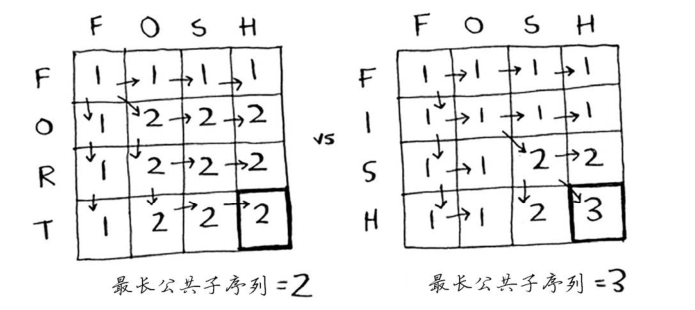 F O S H
F 1 → 1 → 1 → 1
O 1 2 → 2 → 2
R 1 2 → 2 → 2
T 1 2 → 2 → 2
最长公共子序列=2
vs
F O S H
F 1 → 1 → 1 → 1
I 1 → 1 → 1 → 1
S 1 → 1 2 → 2
H 1 → 1 2 3
最长公共子序列=3